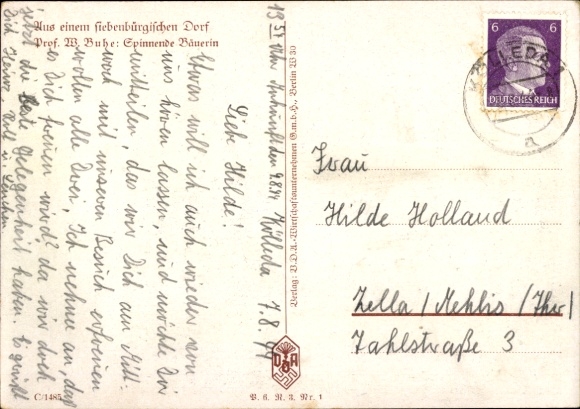 Aus einem siebenbürgischen Dorf
Prof. W. Buhe: Spinnende Bäuerin
Kölleda 7.8.44
Liebe Hilde!
Etwas will ich auch wieder von
uns hören lassen, und möchte Dir
mitteilen, das wir Dich am Mitt-
woch mit unseren Besuch erfreuen
wollen alle Drei, Ich nehme an, das
es Dich freuen wird? da wir doch
jetzt die beste Gelegenheit haben. Es grüßt
Dich Heinz, u.
13 Uhr Ankunft den 9.8.44
C/1485
Verlag: V.D.A.-Wirtschaftsunternehmen G.m.b.H., Berlin W 30
VDA
V. K. N. 3. Nr. 1
6 6
DEUTSCHES REICH
KÖLLEDA
a
Frau
Hilde Holland
Zella/Mehlis/Thür
Zahlstraße 3